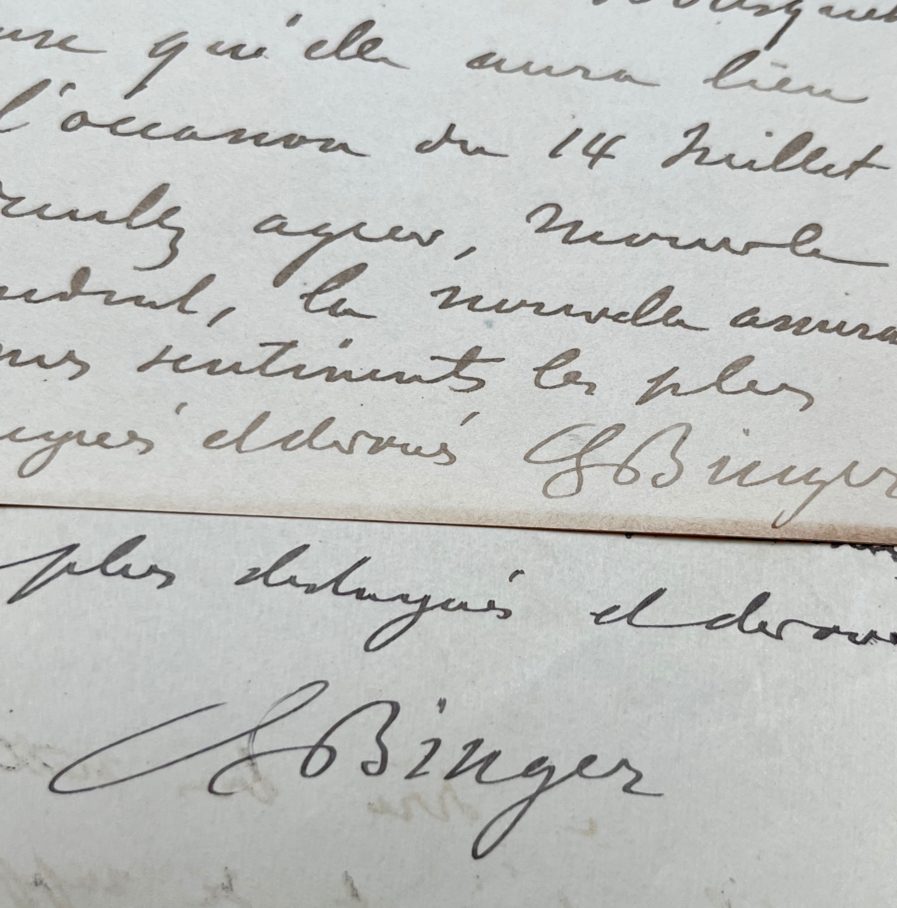 qu'elle aura lieu
l'occasion du 14 Juillet
Veuillez agréer, Monsieur le
la nouvelle assura
mes sentiments les plus
et dévoués GBinger
plus distingués et dévoué
GBinger